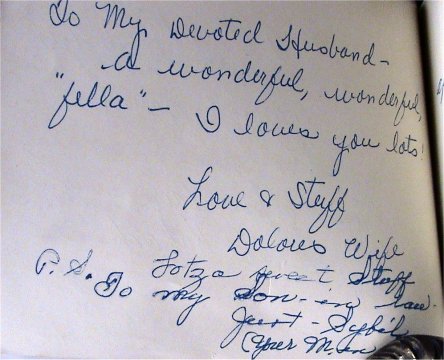 To My Devoted Husband-
a wonderful, wonderful,
"fella" - I loves you lots!
Love & Stuff
Dolores Wife
P.S. Lotza sweet Stuff
To my Son-in law
Just - Sybil
(your M. in